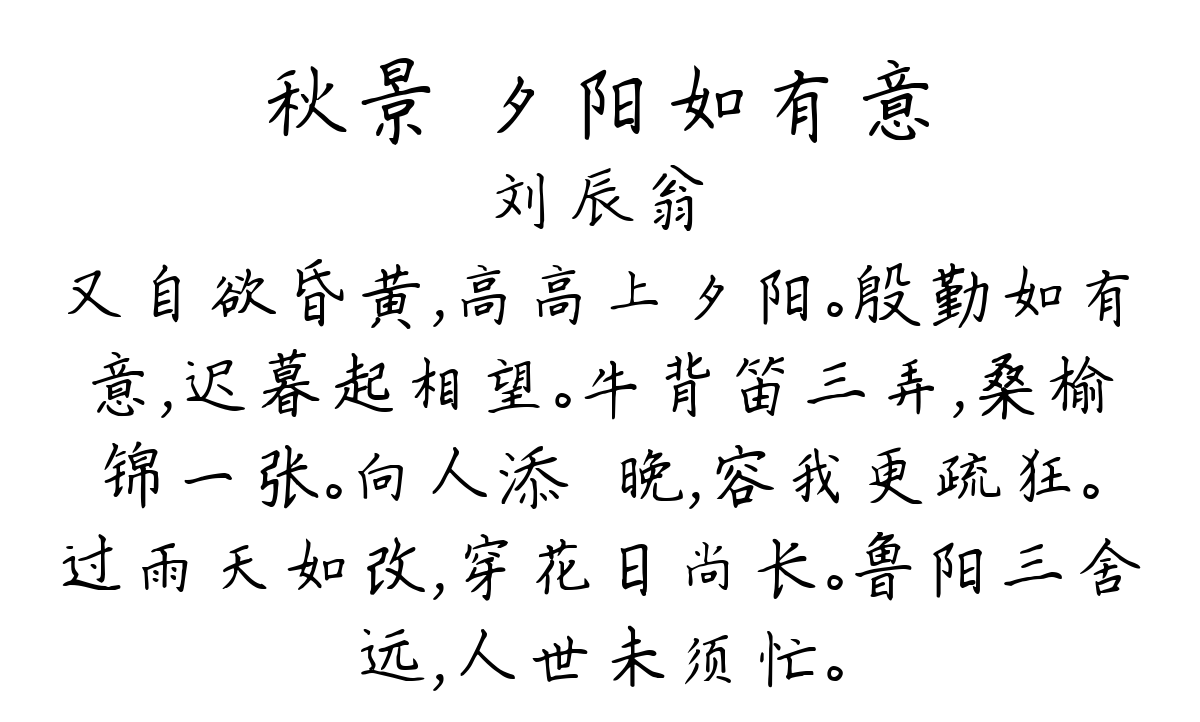 秋景 夕阳如有意
刘辰翁
又自欲昏黄,高高上夕阳。殷勤如有
意,迟暮起相望。牛背笛三弄,桑榆
锦一张。向人添 晚,容我更疏狂。
过雨天如改,穿花日尚长。鲁阳三舍
远,人世未须忙。